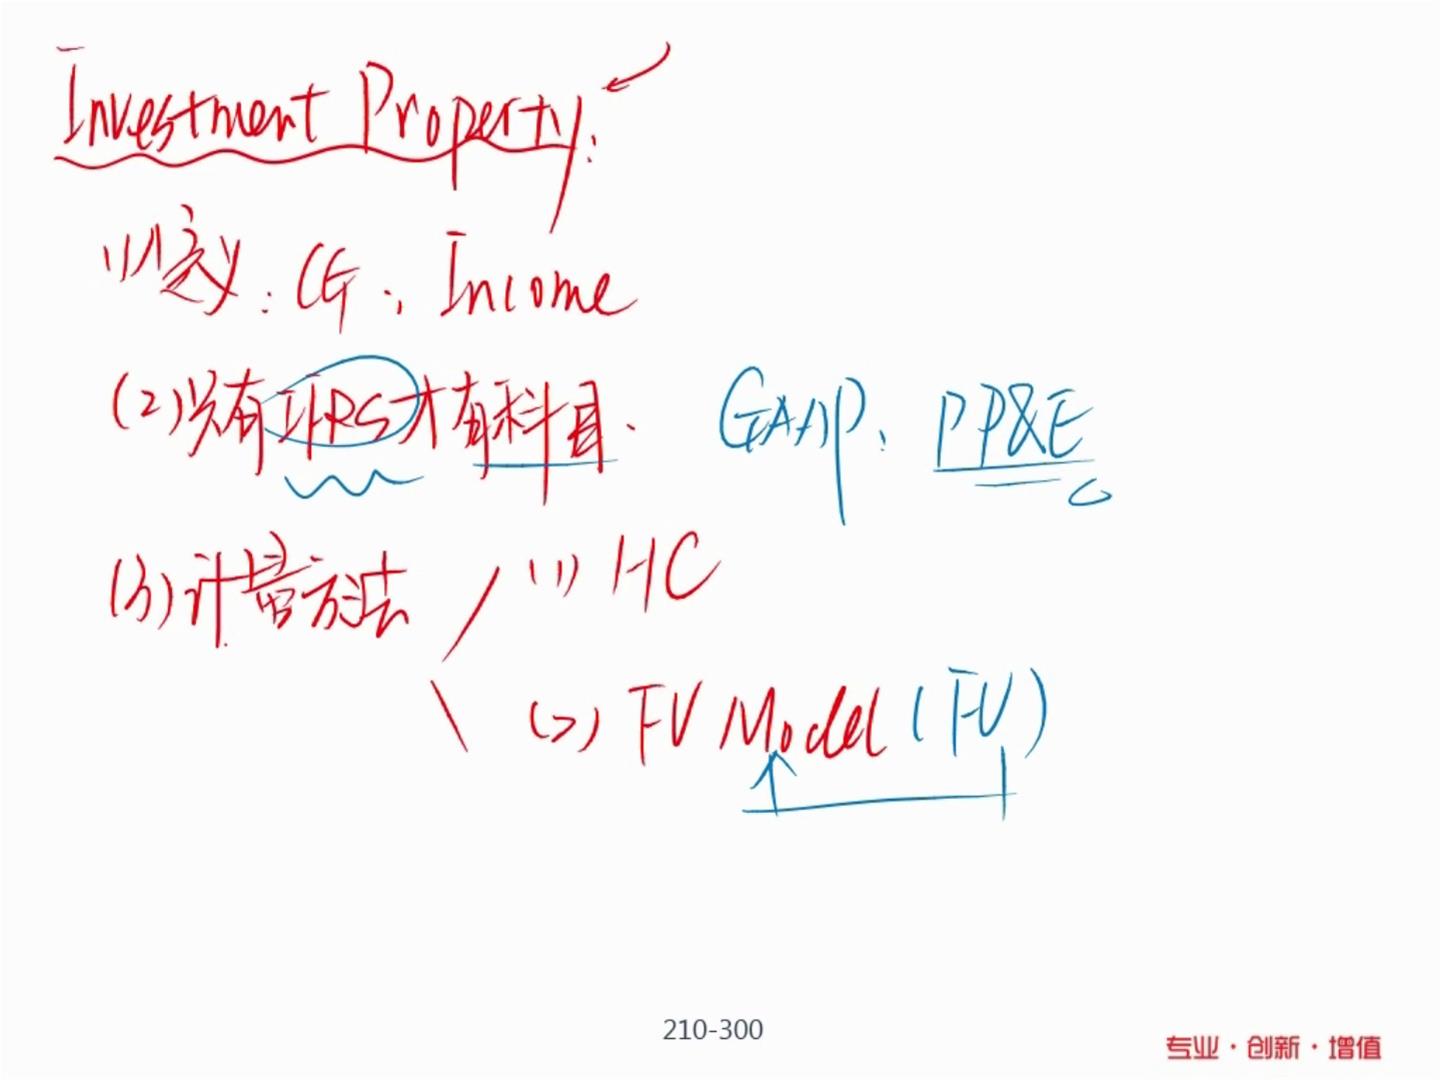 Investment Property:
(1) 定义: CG., Income
(2) 只有IFRS才有科目. GAAP: PP&E
(3) 计量方法 (1) HC
(2) FV Model (FV)
210-300
专业·创新·增值